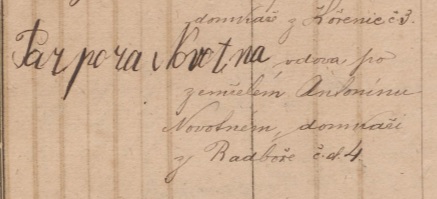 domkáře z Kořenic č 3.
Parpora Novotna, vdova po
zemřelém Antonínu
Novotném, domkáři
z Radboře č.d. 4.